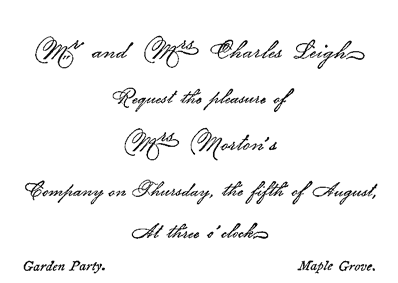 Mr and Mrs Charles Leigh
Request the pleasure of
Mrs Morton's
Company on Thursday, the fifth of August,
At three o'clock
Garden Party. Maple Grove.